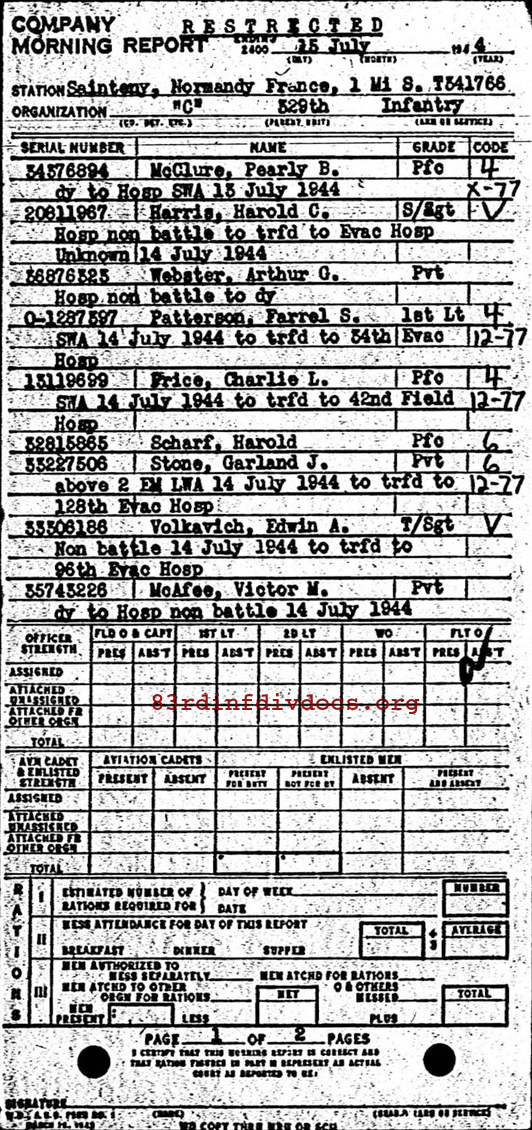 COMPANY
MORNING REPORT
RESTRICTED
ENDING 2400 15 July 1944
(DAY) (MONTH) (YEAR)
STATION Sainteny, Normandy France, 1 Mi S. T341766
ORGANIZATION "C" 329th Infantry
(CO. DET. ETC.) (PARENT UNIT) (ARM OR SERVICE)
SERIAL NUMBER NAME GRADE CODE
34576894 McClure, Pearly B. Pfc 4
dy to Hosp SWA 13 July 1944 X-77
20811967 Harris, Harold C. S/Sgt V
Hosp non battle to trfd to Evac Hosp
Unknown 14 July 1944
36876323 Webster, Arthur G. Pvt
Hosp non battle to dy
O-1287397 Patterson, Farrel S. 1st Lt 4
SWA 14 July 1944 to trfd to 34th Evac 12-77
Hosp
13119699 Price, Charlie L. Pfc 4
SWA 14 July 1944 to trfd to 42nd Field 12-77
Hosp
32815865 Scharf, Harold Pfc 6
33227506 Stone, Garland J. Pvt 6
above 2 EM LWA 14 July 1944 to trfd to 12-77
128th Evac Hosp
33506186 Volkavich, Edwin A. T/Sgt V
Non battle 14 July 1944 to trfd to
96th Evac Hosp
35743226 McAfee, Victor M. Pvt
dy to Hosp non battle 14 July 1944
OFFICER STRENGTH FLD O & CAPT 1ST LT 2D LT WO FLT O
PRES ABS'T PRES ABS'T PRES ABS'T PRES ABS'T PRES ABS'T
ASSIGNED
ATTACHED UNASSIGNED
ATTACHED FR OTHER ORGN
TOTAL
83rdinfdivdocs.org
AVN CADET & ENLISTED STRENGTH AVIATION CADETS ENLISTED MEN
PRESENT ABSENT PRESENT FOR DUTY PRESENT NOT FOR DY ABSENT PRESENT AND ABSENT
ASSIGNED
ATTACHED UNASSIGNED
ATTACHED FR OTHER ORGN
TOTAL
RATIONS
I ESTIMATED NUMBER OF RATIONS REQUIRED FOR DAY OF WEEK DATE NUMBER
II MESS ATTENDANCE FOR DAY OF THIS REPORT TOTAL AVERAGE
BREAKFAST DINNER SUPPER
III MEN AUTHORIZED TO MESS SEPARATELY MEN ATCHD FOR RATIONS
MEN ATCHD TO OTHER ORGN FOR RATIONS NET O & OTHERS MESSED TOTAL
MEN PRESENT LESS PLUS
PAGE 1 OF 2 PAGES
I CERTIFY THAT THIS MORNING REPORT IS CORRECT AND
THAT RATION FIGURES IN PART III REPRESENT AN ACTUAL
COUNT AS REPORTED TO ME:
SIGNATURE
(NAME) (GRADE & ARM OR SERVICE)
W.D., A.G.O. FORM NO. 1
MARCH 1943